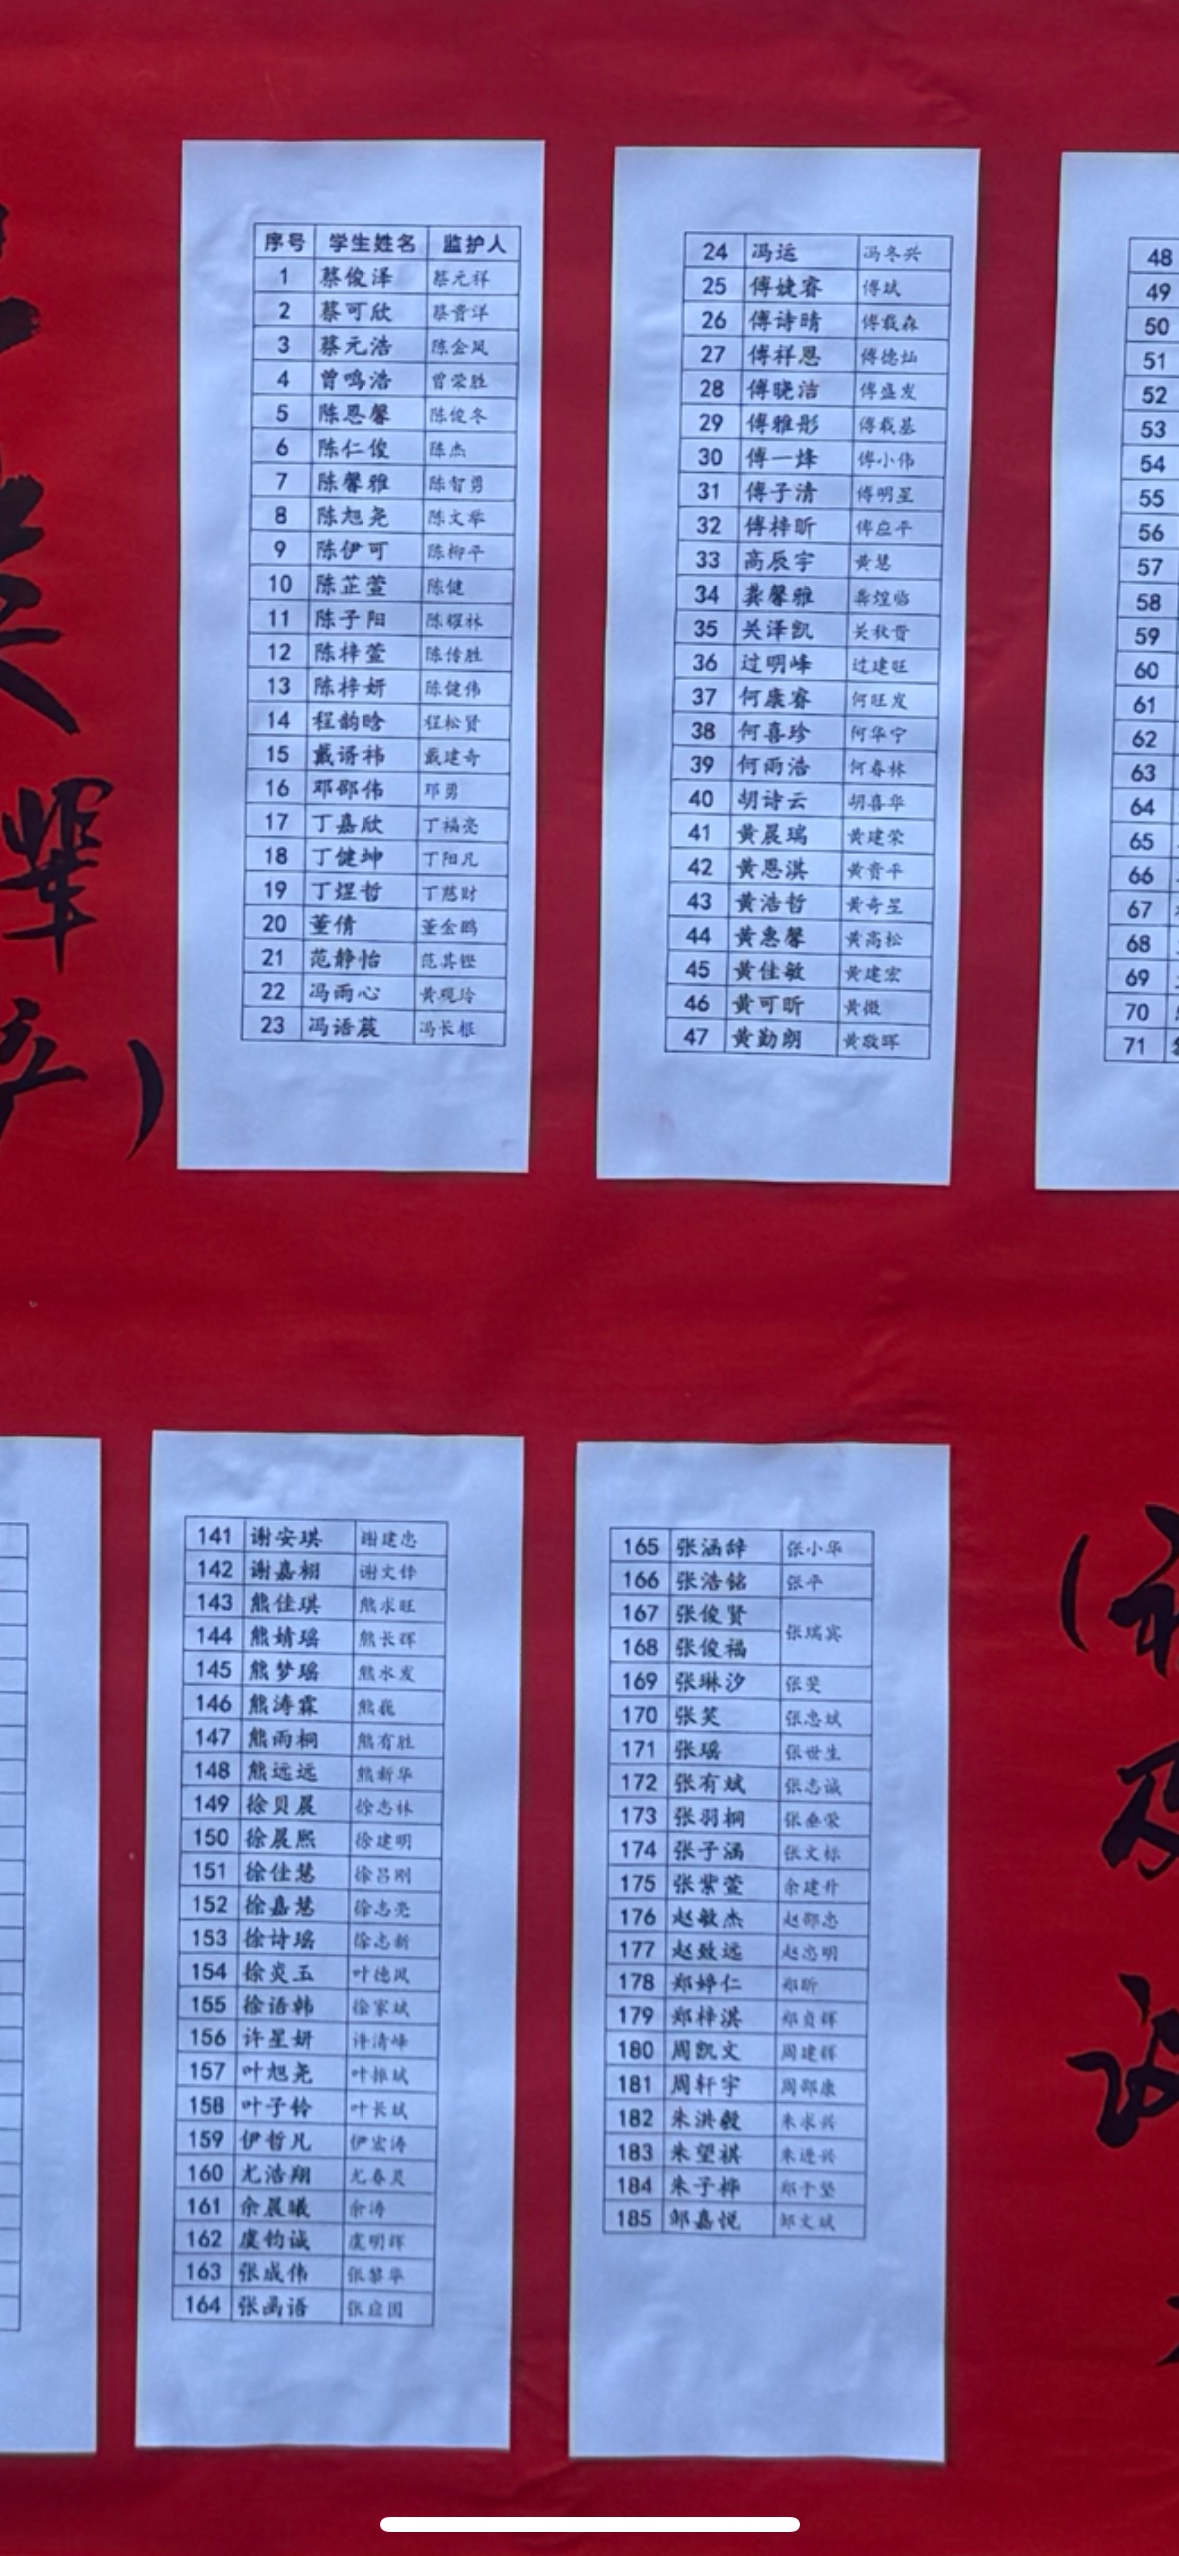 序号 学生姓名 监护人
1 蔡俊泽 蔡元祥
2 蔡可欣 蔡贵洋
3 蔡元浩 陈金凤
4 曾鸣浩 曾荣胜
5 陈恩馨 陈俊冬
6 陈仁俊 陈杰
7 陈馨雅 陈智勇
8 陈旭尧 陈文华
9 陈伊可 陈柳平
10 陈芷萱 陈健
11 陈子阳 陈耀林
12 陈梓萱 陈传胜
13 陈梓妍 陈健伟
14 程韵晗 程松贤
15 戴谞祎 戴建奇
16 邓邵伟 邓勇
17 丁嘉欣 丁福亮
18 丁健坤 丁阳凡
19 丁煜哲 丁慈财
20 董倩 董金鹏
21 范静怡 范其铿
22 冯雨心 黄观玲
23 冯语莀 冯长根
24 冯运 冯冬兴
25 傅婕睿 傅斌
26 傅诗晴 傅载森
27 傅祥恩 傅德灿
28 傅晓洁 傅盛发
29 傅雅彤 傅载基
30 傅一烽 傅小伟
31 傅子清 傅明星
32 傅梓昕 傅应平
33 高辰宇 黄慧
34 龚馨雅 龚煌临
35 关泽凯 关秋贵
36 过明峰 过建旺
37 何康睿 何旺发
38 何喜珍 何华宁
39 何雨浩 何春林
40 胡诗云 胡喜华
41 黄晨瑞 黄建荣
42 黄恩淇 黄贵平
43 黄浩哲 黄奇星
44 黄惠馨 黄高松
45 黄佳敏 黄建宏
46 黄可昕 黄微
47 黄勤朗 黄敬晖
48
49
50
51
52
53
54
55
56
57
58
59
60
61
62
63
64
65
66
67
68
69
70
71
辈
141 谢安琪 谢建忠
142 谢嘉栩 谢文锋
143 熊佳琪 熊求旺
144 熊婧瑶 熊长辉
145 熊梦瑶 熊水发
146 熊涛霖 熊巍
147 熊雨桐 熊有胜
148 熊远远 熊新华
149 徐贝晨 徐志林
150 徐晨熙 徐建明
151 徐佳慧 徐吕刚
152 徐嘉慧 徐志亮
153 徐诗瑶 徐志新
154 徐炎玉 叶德凤
155 徐语韩 徐家斌
156 许星妍 许清峰
157 叶旭尧 叶振斌
158 叶子铃 叶长斌
159 伊哲凡 伊宏涛
160 尤浩翔 尤春灵
161 余晨曦 余涛
162 虞钧诚 虞明辉
163 张成伟 张黎华
164 张函语 张应国
165 张涵辞 张小华
166 张浩铭 张平
167 张俊贤 张瑞宾
168 张俊福
169 张琳汐 张斐
170 张笑 张忠斌
171 张瑶 张世生
172 张有斌 张志诚
173 张羽桐 张垂荣
174 张子涵 张文标
175 张紫萱 余建升
176 赵敏杰 赵邵忠
177 赵致远 赵忠明
178 郑婷仁 郑昕
179 郑梓淇 郑贞辉
180 周凯文 周建辉
181 周轩宇 周邵康
182 朱洪毅 朱求兴
183 朱望祺 朱进兴
184 朱子桦 郑于坚
185 邹嘉悦 邹文斌